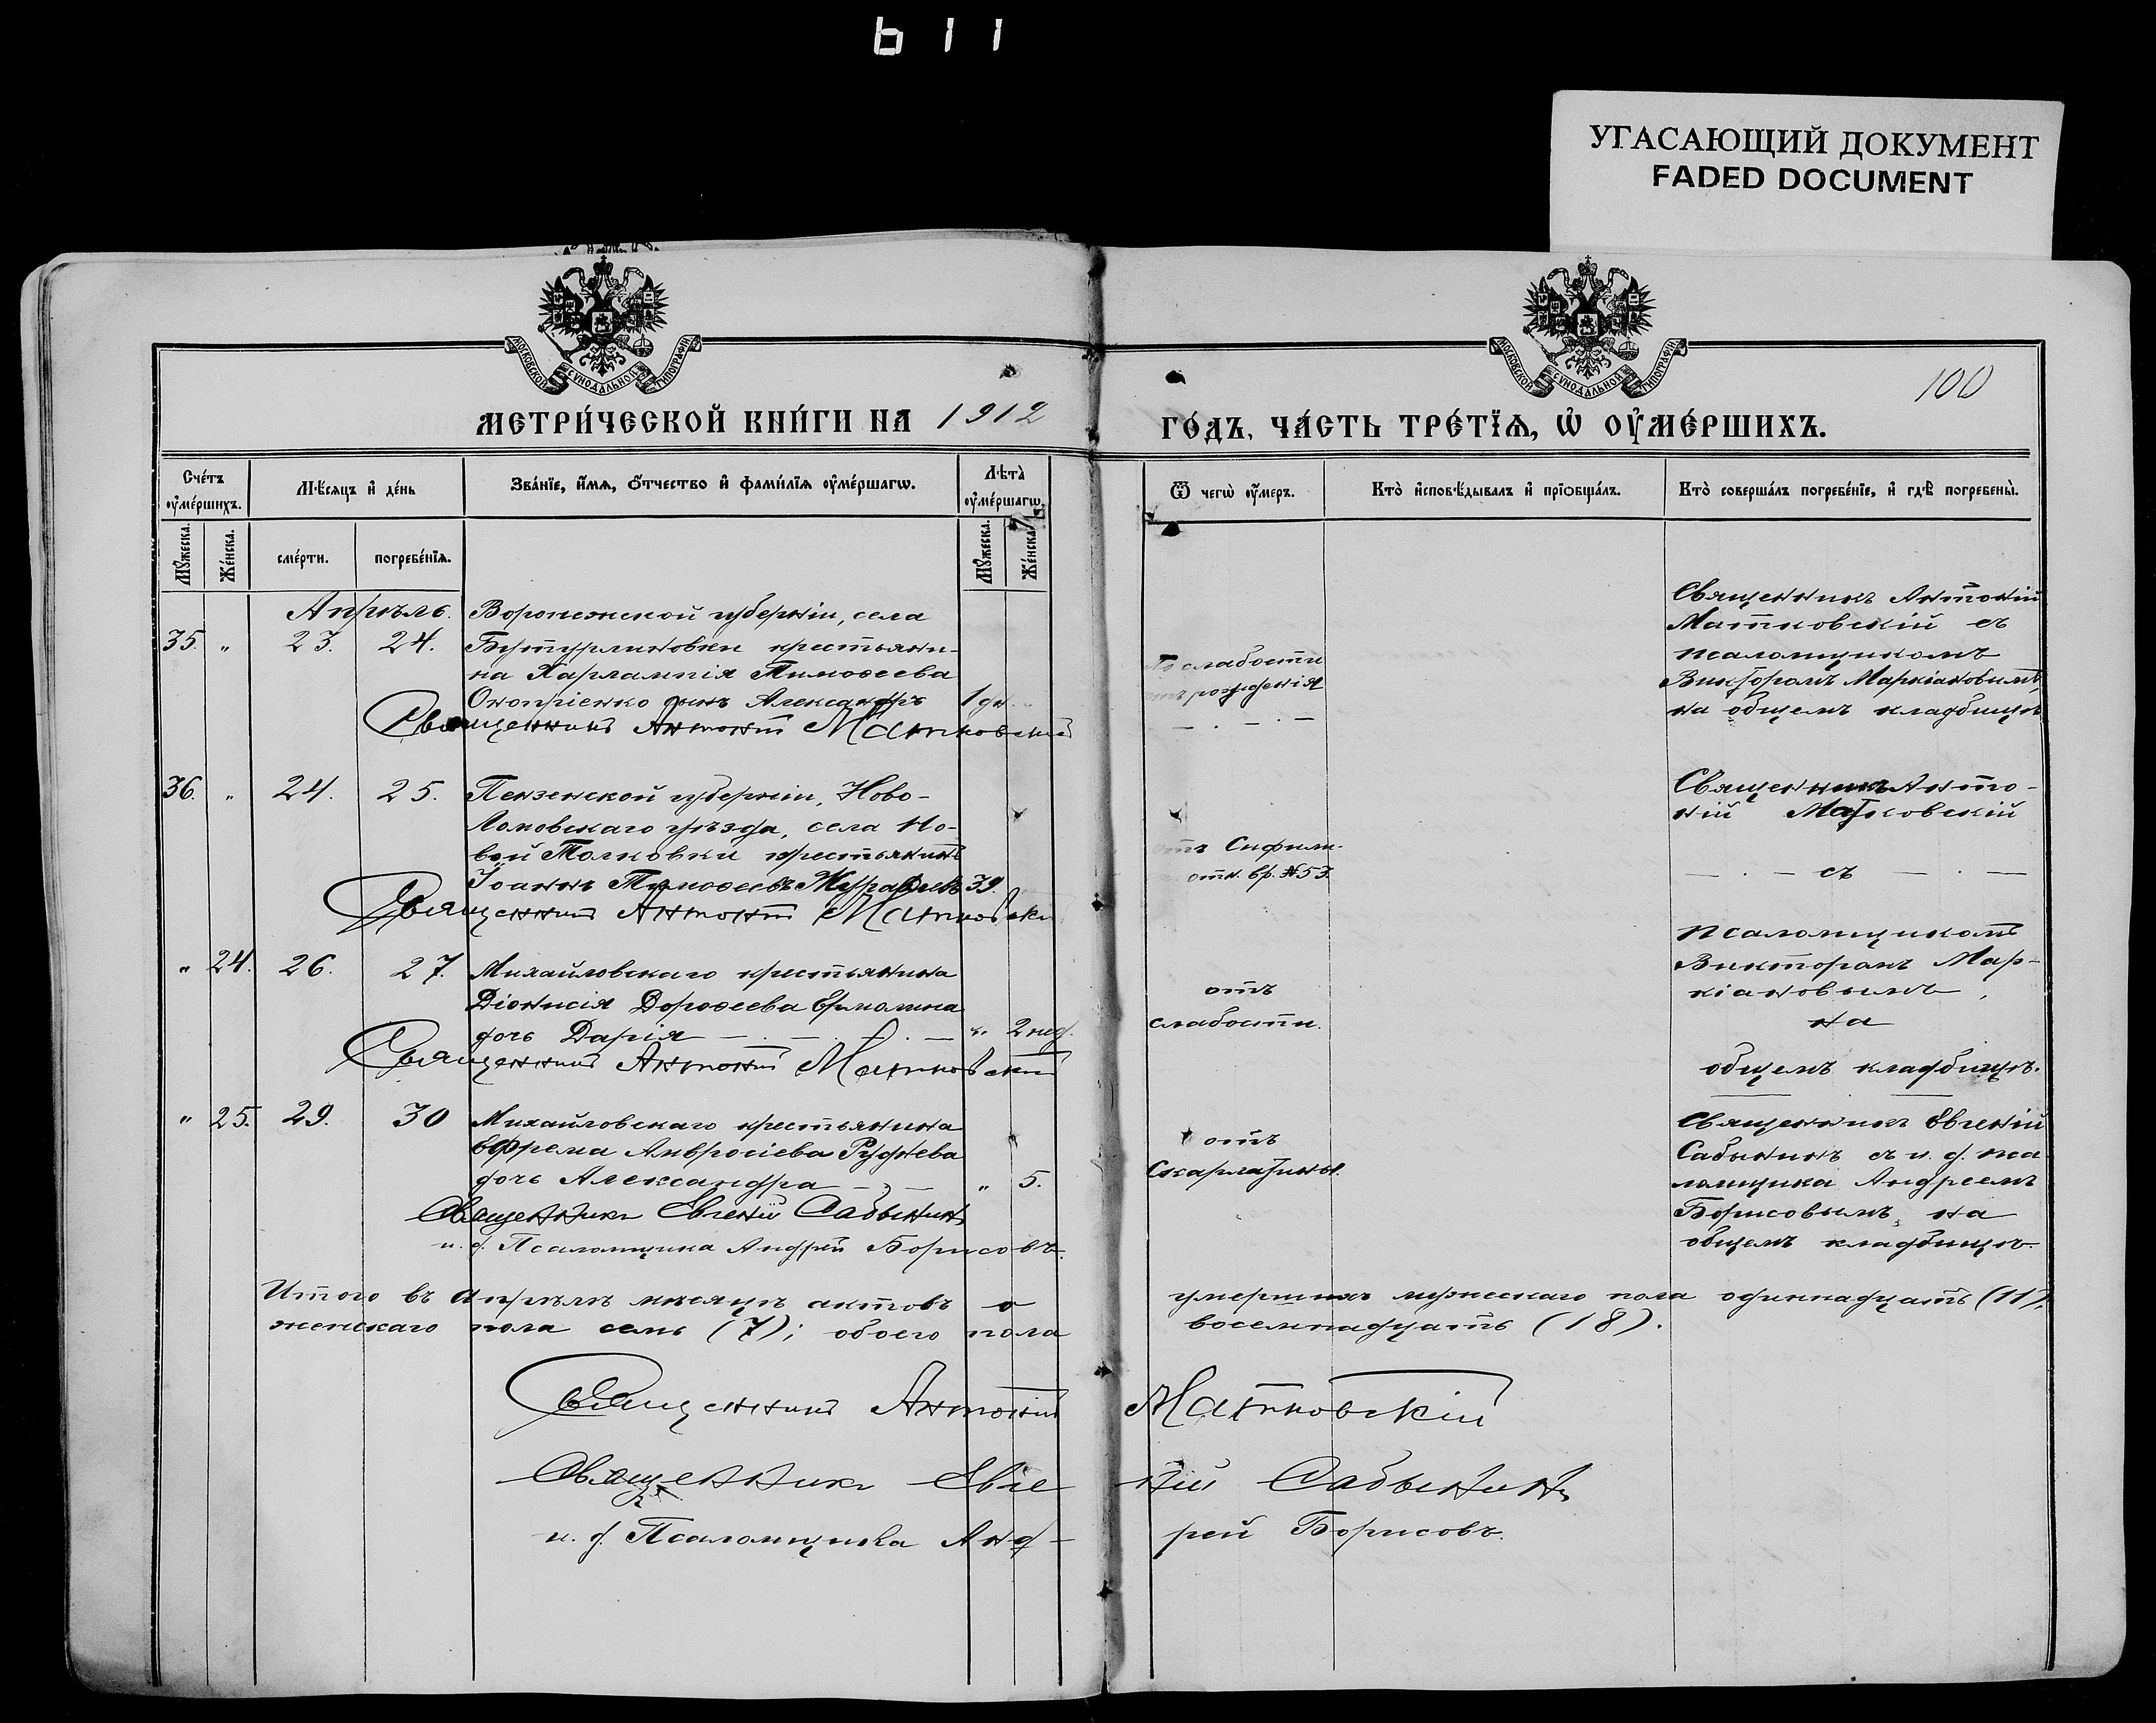 611
УГАСАЮЩИЙ ДОКУМЕНТ
FADED DOCUMENT
МОСКОВСКОЙ СУНОДАЛЬНОЙ ТИПОГРАФІИ
МОСКОВСКОЙ СУНОДАЛЬНОЙ ТИПОГРАФІИ
100
МЕТРИ́ЧЕСКОЙ КНИ́ГИ НА 1912 ГО́ДЪ, ЧА́СТЬ ТРЕ́ТЇѦ, Ѡ҆ ОУ҆МЕ́РШИХЪ.
Сче́тъ оу҆ме́ршихъ.
Мѣ́сѧцъ и҆ де́нь
Зва́нїе, и҆́мѧ, ѻ҆́тчество и҆ фами́лїѧ оу҆ме́ршагѡ.
Лѣ́та оу҆ме́ршагѡ.
Ѿ чегѡ̀ оу҆́меръ.
Кто̀ и҆сповѣ́дывалъ и҆ прїѡбща́лъ.
Кто̀ соверша́лъ погребе́нїе, и҆ гдѣ̀ погребены̀.
Мꙋ́жеска.
Же́нска.
сме́рти.
погребе́нїѧ.
Мꙋ́жеска.
Же́нска.
Апрѣль.
35. " 23. 24.
Воронежской губерніи, села
Бутурлиновки крестьяни-
на Харлампія Тимоѳеева
Оноприенко сынъ Александръ 1 дн.
Священникъ Антоній Матковскій
слабости
рожденія
Священникъ Антоній
Матковскій съ
псаломщикомъ
Викторомъ Маркіановымъ,
на общемъ кладбищѣ
36. " 24. 25.
Пензенской губерніи, Ново-
Ломовскаго уѣзда, села Но-
вой Толковки крестьянинъ
Іоаннъ Тимоѳеевъ Журавлевъ 39.
Священникъ Антоній Матковскій
отъ Сифили-
отн. вр. №53.
Священникъ Анто-
ній Матковскій
съ
псаломщикомъ
Викторомъ Мар-
кіановымъ,
на
общемъ кладбищѣ.
" 24. 26. 27.
Михайловскаго крестьянина
Діонисія Дороѳеева Ермолина
дочь Дарія " 2 нед.
Священникъ Антоній Матковскій
отъ
слабости.
" 25. 29. 30
Михайловскаго крестьянина
Ефрема Амвросіева Руднева
дочь Александра " 5.
Священникъ Евгеній Сабынинъ
и. д. Псаломщика Андрей Борисовъ.
отъ
Скарлатины.
Священникъ Евгеній
Сабынинъ съ и. д. пса
ломщика Андреемъ
Борисовымъ, на
общемъ кладбищѣ.
Итого въ Апрѣлѣ мѣсяцѣ актовъ о умершихъ мужескаго пола одиннадцать (11),
женскаго пола семь (7); обоего пола восемнадцать (18).
Священникъ Антоній Матковскій
Священникъ Евгеній Сабынинъ
и. д. Псаломщика Анд-рей Борисовъ.